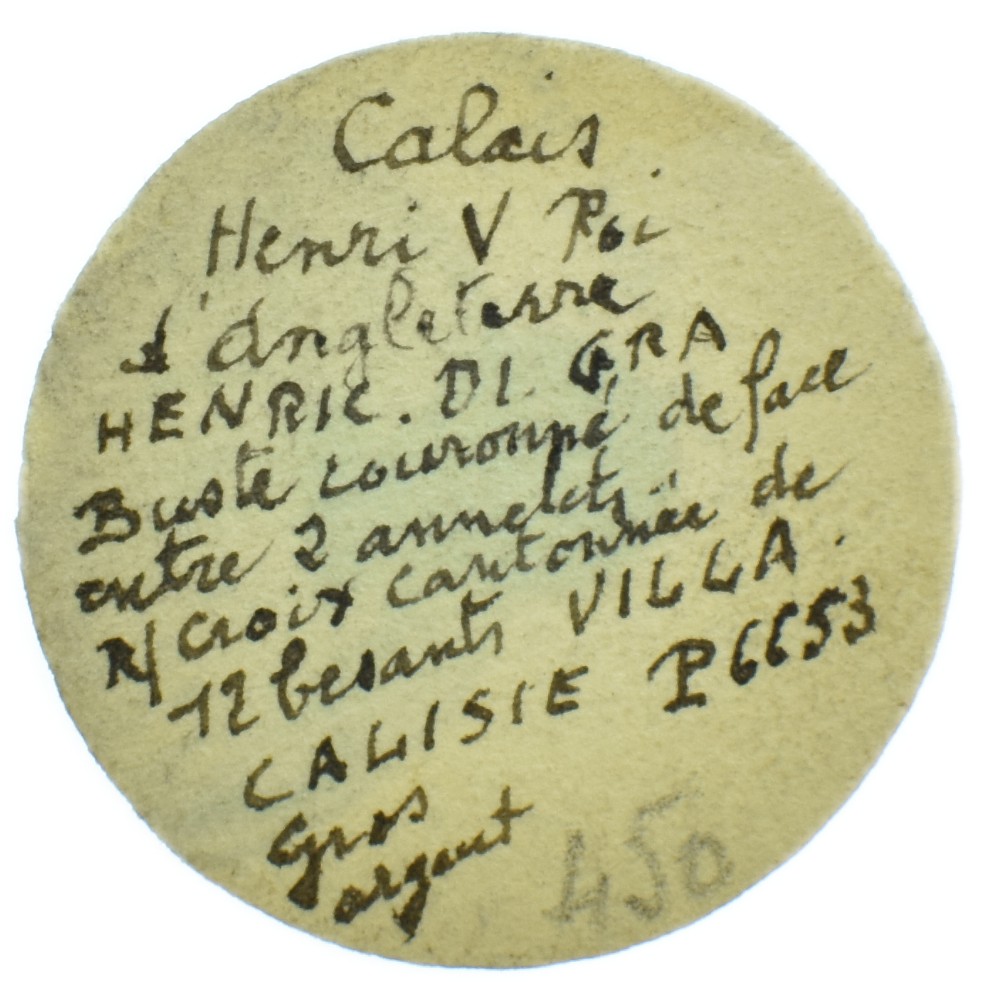 Calais
Henri V Roi
d'Angleterre
HENRIC. DI. GRA
Buste couronné de face
entre 2 annelets.
R/ Croix cantonnée de
12 besants VILLA.
CALISIE P6653
Gros
argent
450